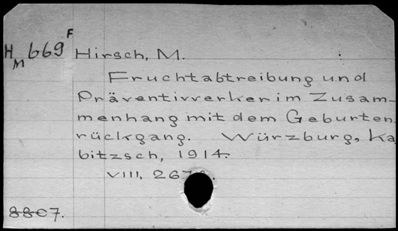 HM 669 F Hirsch, M.
Fruchtabtreibung und
Präventivverker im Zusam-
menhang mit dem Geburten
rückgang. Würzburg, Ka
bitzsch, 1914.
VIII, 267
8807.